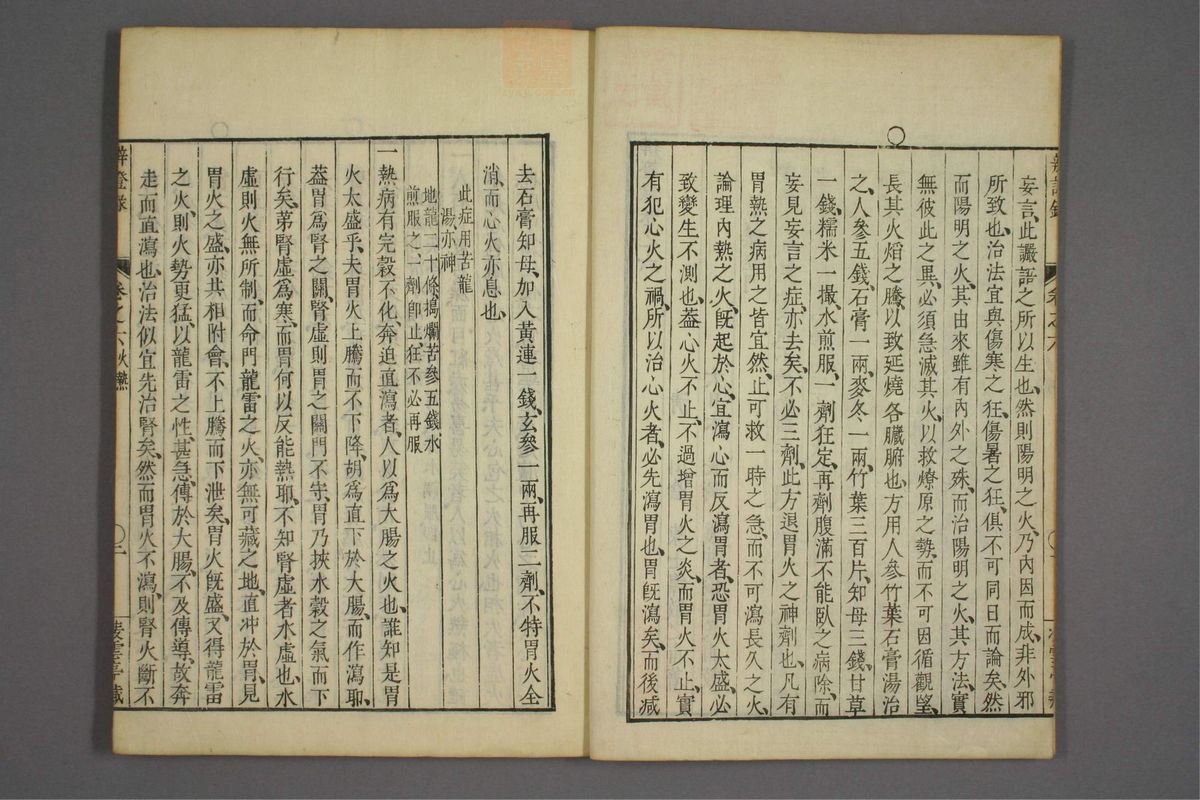 妄言、此讝語之所以生也、然則陽明之火、乃內因而成、非外邪
所致也、治法宜與傷寒之狂、傷暑之狂、俱不可同日而論矣、然
而陽明之火、其由來雖有內外之殊、而治陽明之火、其方法實
無彼此之異、必須急滅其火、以救燎原之勢、而不可因循觀望、
長其火熖之騰、以致延燒各臟腑也、方用人參竹葉石膏湯治
之、人參五錢、石膏一兩、麥冬一兩、竹葉三百片、知母三錢、甘草
一錢、糯米一撮、水煎服、一劑狂定、再劑腹滿不能臥之病除、而
妄見妄言之症、亦去矣、不必三劑、此方退胃火之神劑也、凡有
胃熱之病、用之皆宜、然止可救一時之急、而不可瀉長久之火、
論理內熱之火、旣起於心、宜瀉心而反瀉胃者、恐胃火太盛、必
致變生不測也、葢心火不止、不過增胃火之炎、而胃火不止、實
有犯心火之禍、所以治心火者、必先瀉胃也、胃旣瀉矣、而後減
去石膏知母、加入黃連一錢、玄參一兩、再服二劑、不特胃火全
消、而心火亦息也、
此症用苦龍
湯亦神
地龍二十條搗爛苦參五錢水
煎服之一劑卽止狂不必再服
一熱病有完穀不化、奔迫直瀉者、人以爲大腸之火也、誰知是胃
火太盛乎、夫胃火上騰而不下降、胡爲直下於大腸、而作瀉耶、
葢胃爲腎之關、腎虛則胃之關門不守、胃乃挾水穀之氣而下
行矣、第腎虛爲寒、而胃何以反能熱耶、不知腎虛者、水虛也、水
虛則火無所制、而命門龍雷之火、亦無可藏之地、直冲於胃、見
胃火之盛、亦共相附會、不上騰而下泄矣、胃火旣盛、又得龍雷
之火、則火勢更猛、以龍雷之性、甚急、傳於大腸、不及傳導、故奔
走而直瀉也、治法似宜先治腎矣、然而胃火不瀉、則腎火斷不
卷之六火𤍠